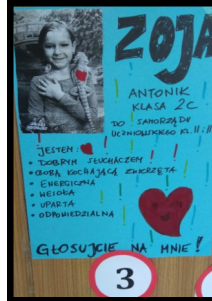 ZOJA
ANTONIK
KLASA 2C
DO SAMORZĄDU
UCZNIOWSKIEGO KL. II
JESTEM:
• DOBRYM SŁUCHACZEM
• OSOBĄ KOCHAJĄCĄ ZWIERZĘTA
• ENERGICZNA
• WESOŁA
• UPARTA
• ODPOWIEDZIALNA
GŁOSUJCIE NA MNIE!
3